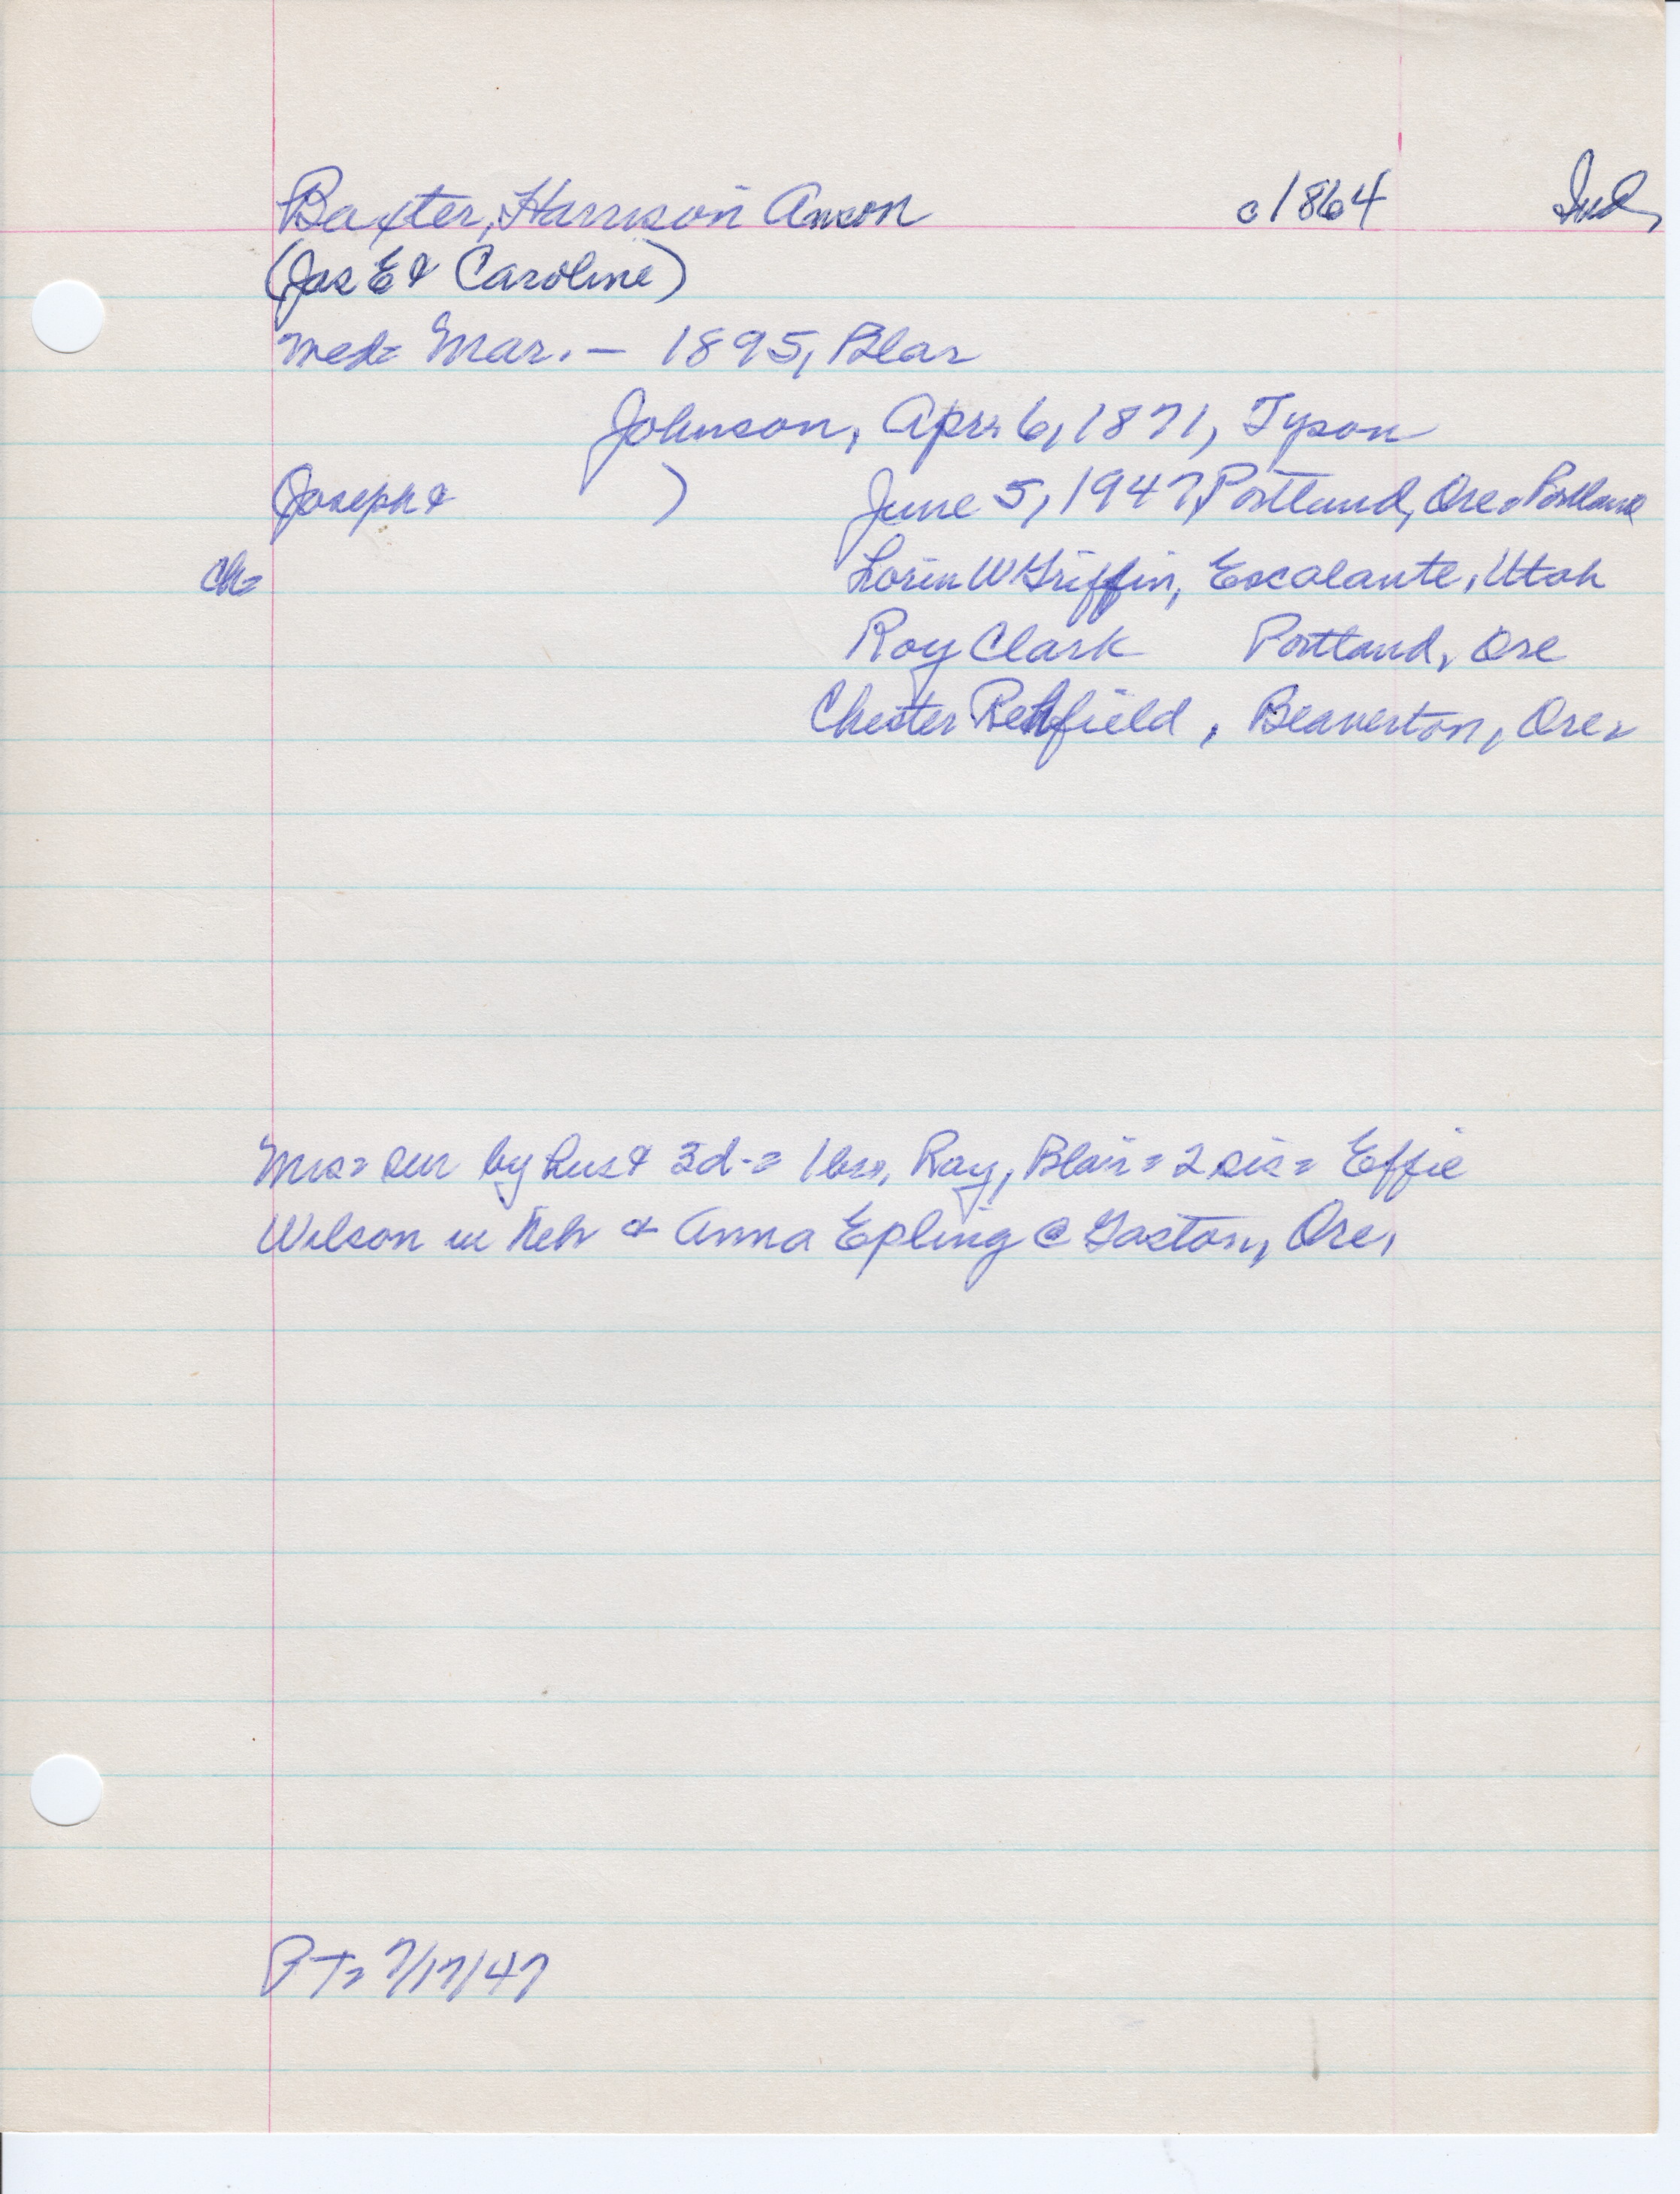 Baxter, Harrison Anson c1864 Ind,
(Jas E & Caroline)
Med= Mar. – 1895, Blar
Johnson, Apr. 6, 1871, Tyson
Joseph & ) June 5, 1947, Portland, Ore. Portland
Ch= Lorin W Griffin, Escalante, Utah
Roy Clark Portland, Ore
Chester Rehfield, Beaverton, Ore.
Mrs= sur by hus & 3d-= 1 bro, Ray, Blair= 2 sis= Effie
Wilson in Neb & Anna Epling @ Gaston, Ore,
PT= 7/17/47